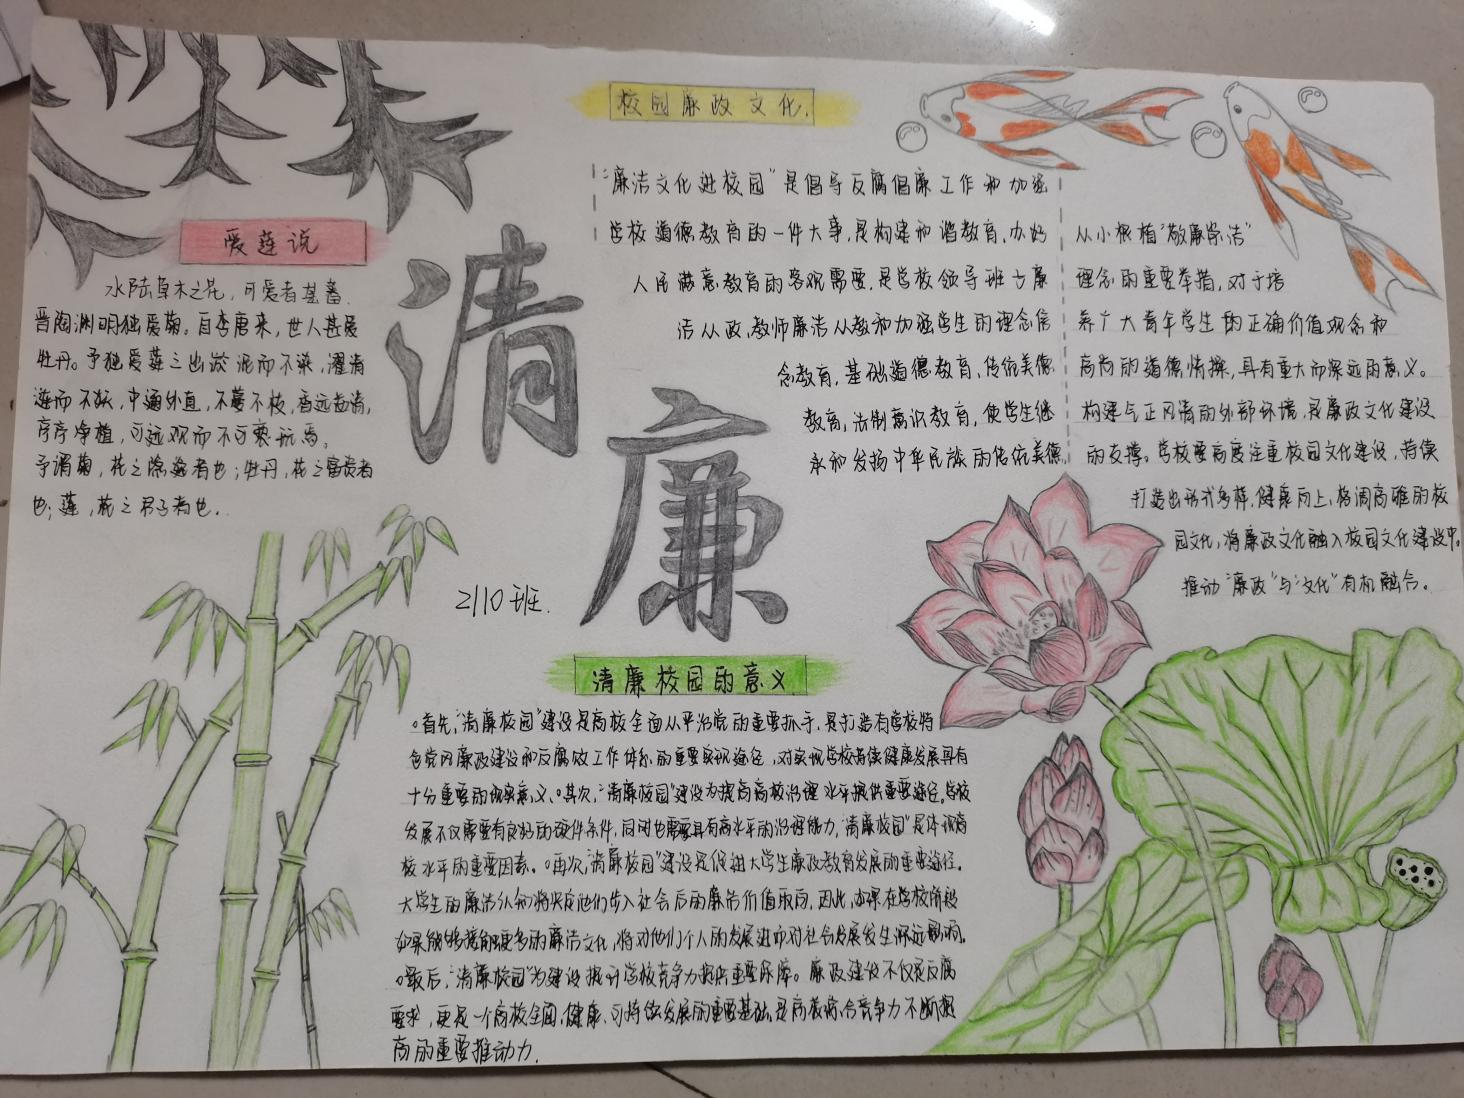 校园廉政文化.
"廉洁文化进校园"是倡导反腐倡廉工作和加强
学校道德教育的一件大事,是构建和谐教育,办好
人民满意教育的客观需要,是学校领导班子廉
洁从政,教师廉洁从教和加强学生的理念信
念教育,基础道德教育,传统美德
教育,法制意识教育,使学生继
承和发扬中华民族的传统美德
从小根植"敬廉崇洁"
理念的重要举措,对于培
养广大青年学生的正确价值观念和
高尚的道德情操,具有重大而深远的意义。
构建与正风清的外部环境,是廉政文化建设
的支撑。学校要高度注重校园文化建设,持续
打造出形式多样,健康向上,格调高雅的校
园文化,将廉政文化融入校园文化建设中。
推动"廉政"与"文化"有机融合。
爱莲说
水陆草木之花,可爱者甚蕃.
晋陶渊明独爱菊。自李唐来,世人甚爱
牡丹。予独爱莲之出淤泥而不染,濯清
涟而不妖,中通外直,不蔓不枝,香远益清,
亭亭净植,可远观而不可亵玩焉。
予谓菊,花之隐逸者也;牡丹,花之富贵者
也;莲,花之君子者也.
清
廉
2110班.
清廉校园的意义
首先,"清廉校园"建设是高校全面从严治党的重要抓手,是打造有学校特
色党内廉政建设和反腐败工作体系的重要实现途径,对实现学校持续健康发展具有
十分重要的现实意义、其次,"清廉校园"建设为提高高校治理水平提供重要途径,学校
发展不仅需要有良好的硬件条件,同时也需要具有高水平的治理能力,"清廉校园"是体现高
校水平的重要因素。再次,"清廉校园"建设是促进大学生廉政教育发展的重要途径.
大学生的廉洁认知将决定他们步入社会后的廉洁价值取向,因此,如果在学校阶段
如果能够接触更多的廉洁文化,将对他们个人的发展进而对社会发展发生深远影响.
最后,"清廉校园"为建设提升学校竞争力提供重要保障。廉政建设不仅是反腐
要求,更是一个高校全面,健康,可持续发展的重要基础,是高校综合竞争力不断提
高的重要推动力.